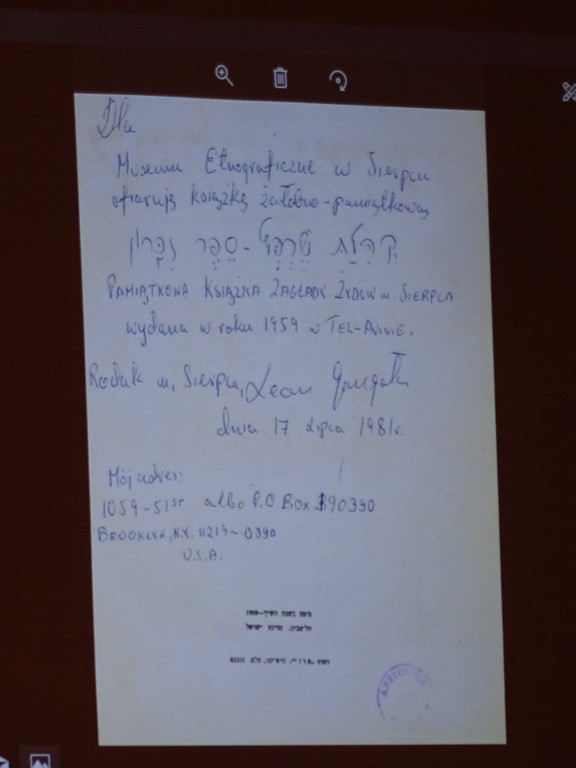 Dla
Muzeum Etnograficzne w Sierpcu
ofiaruję książkę żałobno-pamiątkową
קהלת שרפץ - ספר זכרון
PAMIĄTKOWA KSIĄŻKA ZAGŁADY ŻYDÓW m. SIERPCA
wydana w roku 1959 w TEL-AVIVIE.
Rodak m, Sierpca, Leon
dnia 17 Lipca 1981r.
Mój adres:
1059-51ST albo P.O BOX 390390
BROOKLYN, N.Y. 11219-0390
U.S.A.